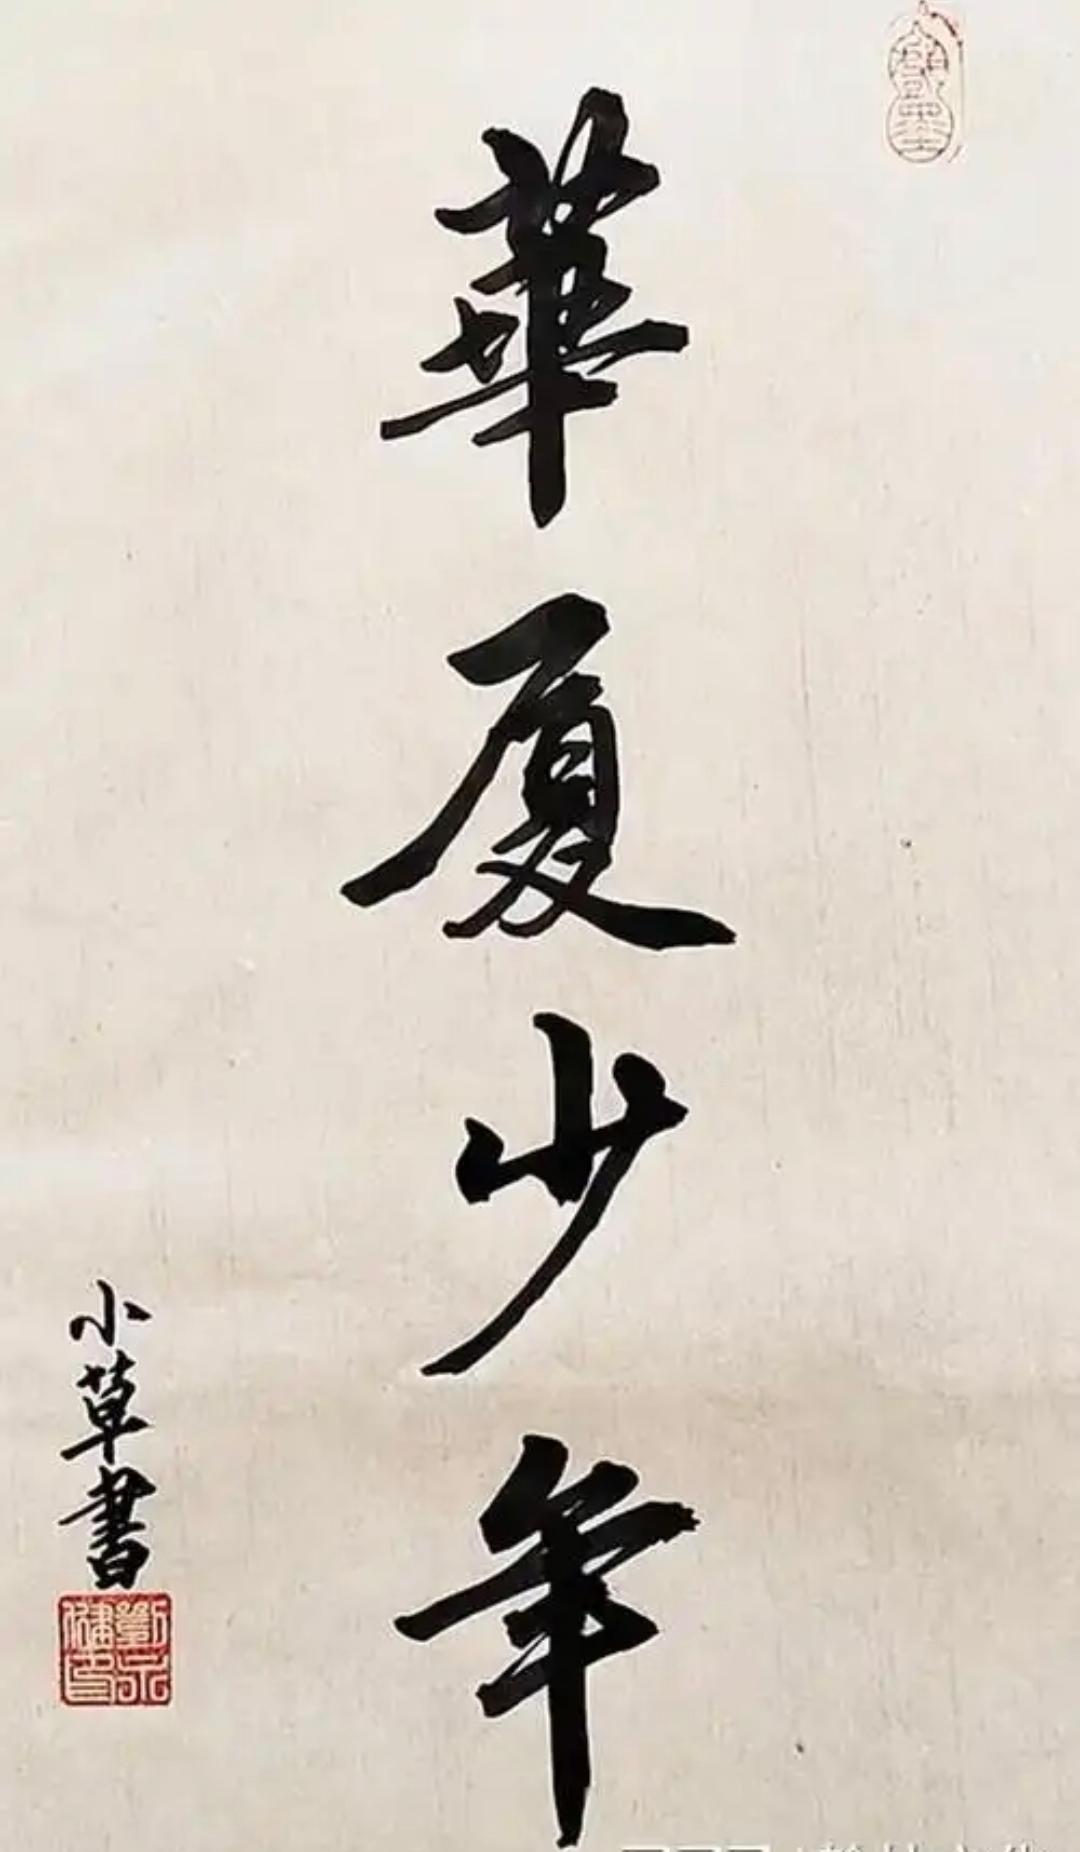 華夏少年
小草書